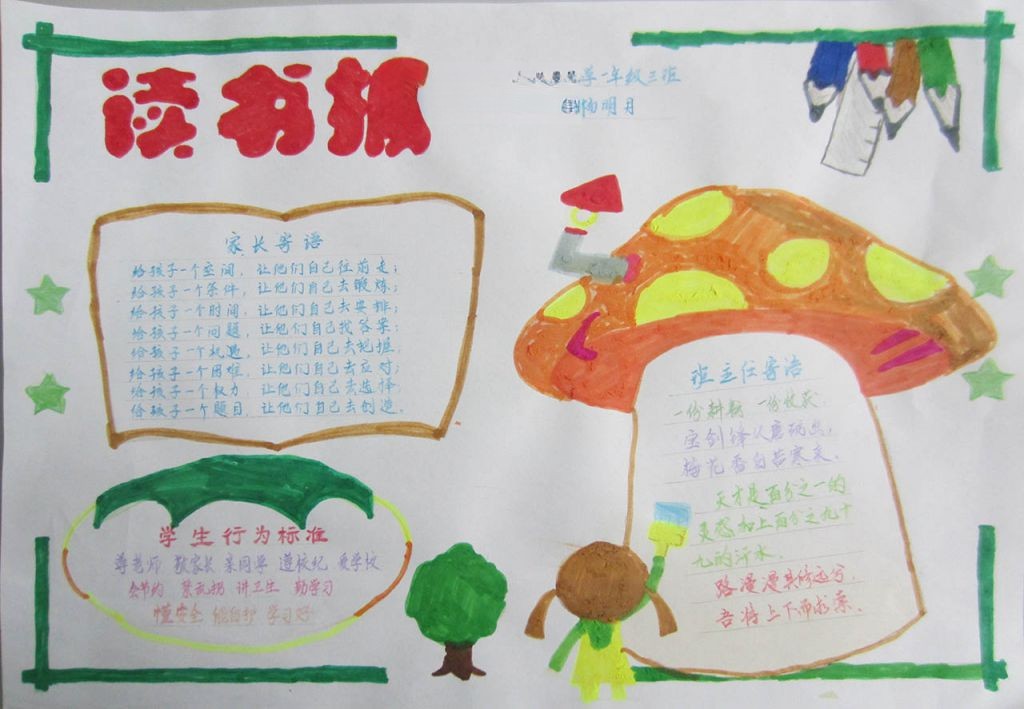 读书报
学一年级三班
杨明月
家长寄语
给孩子一个空间，让他们自己往前走；
给孩子一个条件，让他们自己去锻炼；
给孩子一个时间，让他们自己去安排；
给孩子一个问题，让他们自己找答案；
给孩子一个机遇，让他们自己去把握；
给孩子一个困难，让他们自己去应对；
给孩子一个权力，让他们自己去选择，
给孩子一个题目，让他们自己去创造。
学生行为标准
尊老师 敬家长 亲同学 遵校纪 爱学校
会节约 禁乱扔 讲卫生 勤学习
懂安全 能自护 学习好
班主任寄语
一份耕耘 一份收获
宝剑锋从磨砺出，
梅花香自苦寒来。
天才是百分之一的
灵感加上百分之九十
九的汗水。
路漫漫其修远兮，
吾将上下而求索。